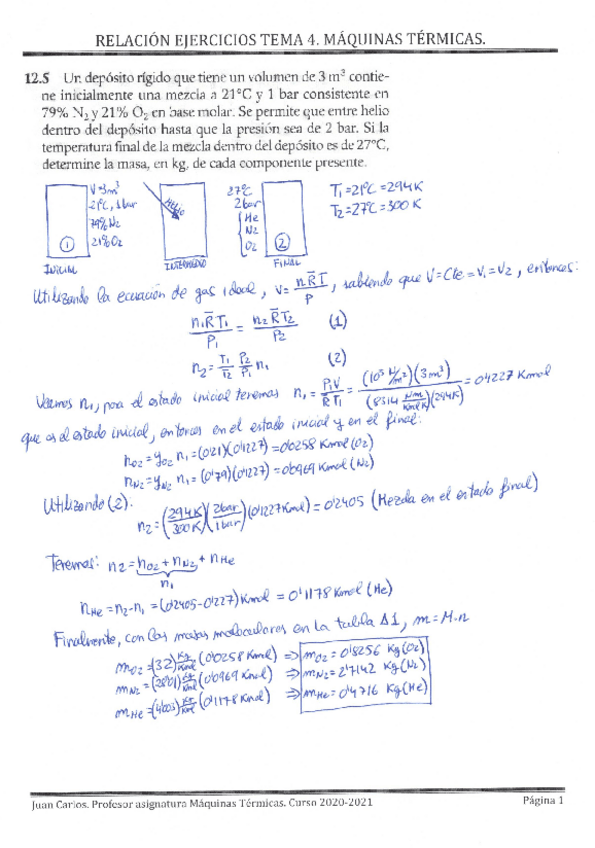 RELACIÓN EJERCICIOS TEMA 4. MÁQUINAS TÉRMICAS.
12.5 Un depósito rígido que tiene un volumen de 3 m³ contie-
ne inicialmente una mezcla a 21°C y 1 bar consistente en
79% N₂ y 21% O₂ en base molar. Se permite que entre helio
dentro del depósito hasta que la presión sea de 2 bar. Si la
temperatura final de la mezcla dentro del depósito es de 27°C,
determine la masa, en kg. de cada componente presente.
V=3m³
21°C, 1bar
79% N₂
21% O₂
①
INICIAL
Helio
INTERMEDIO
27°C
2bar
He
N₂
O₂
②
FINAL
T₁=21°C=294K
T₂=27°C=300K
Utilizando la ecuación de gas ideal, V=nR̄T/P, sabiendo que V=Cte=V₁=V₂, entonces:
n₁R̄T₁/P₁ = n₂R̄T₂/P₂ (1)
n₂= T₁/T₂ P₂/P₁ n₁ (2)
Veamos n₁, para el estado inicial tenemos n₁= P₁V/R̄T₁ = (10⁵ N/m²)(3m³)/(8314 Nm/KmolK)(294K) = 0'1227 Kmol
que es el estado inicial, entonces en el estado inicial y en el final:
nO₂=yO₂ n₁=(0'21)(0'1227)=0'0258 Kmol(O₂)
nN₂=yN₂ n₁=(0'79)(0'1227)=0'0969 Kmol(N₂)
Utilizando (2):
n₂=(294K/300K)(2bar/1bar)(0'1227Kmol)=0'2405 (Mezcla en el estado final)
Tenemos: n₂=nO₂+nN₂+nHe
n₁
nHe=n₂-n₁=(0'2405-0'1227)Kmol=0'1178Kmol(He)
Finalmente, con las masas moleculares en la tabla A1, m=M·n
mO₂=(32)Kg/Kmol(0'0258 Kmol) ⇒ mO₂=0'8256 Kg(O₂)
mN₂=(28'01)Kg/Kmol(0'0969 Kmol) ⇒ mN₂=2'7142 Kg(N₂)
mHe=(4'003)Kg/Kmol(0'1178 Kmol) ⇒ mHe=0'4716 Kg(He)
Juan Carlos. Profesor asignatura Máquinas Térmicas. Curso 2020-2021
Página 1